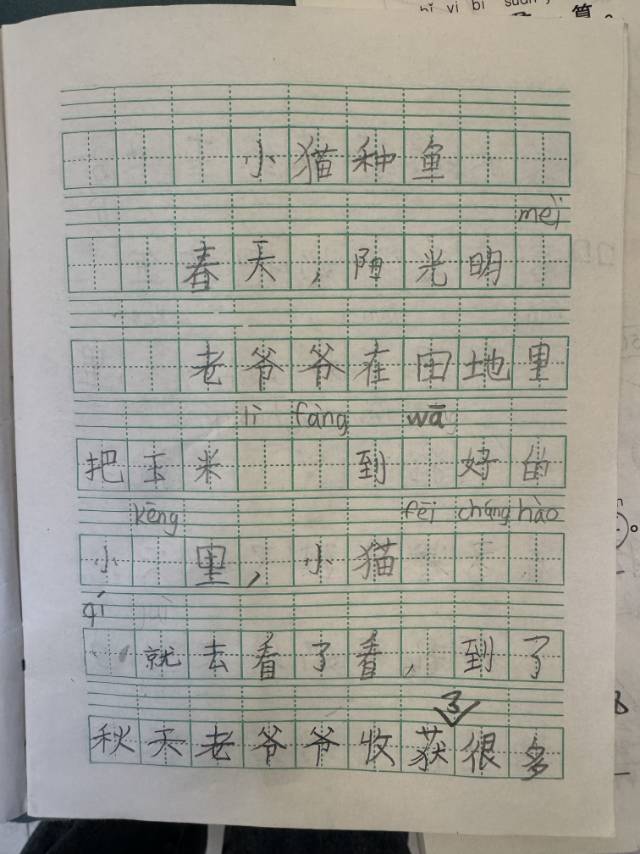 bǐ yì bǐ suàn
算。
小猫种鱼
měi
春天,阳光明
老爷爷在田地里
lì fàng wā
把玉米到好的
kēng fēi cháng hào
小里,小猫
qí
就去看了看,到了
了
秋天老爷爷收获很多